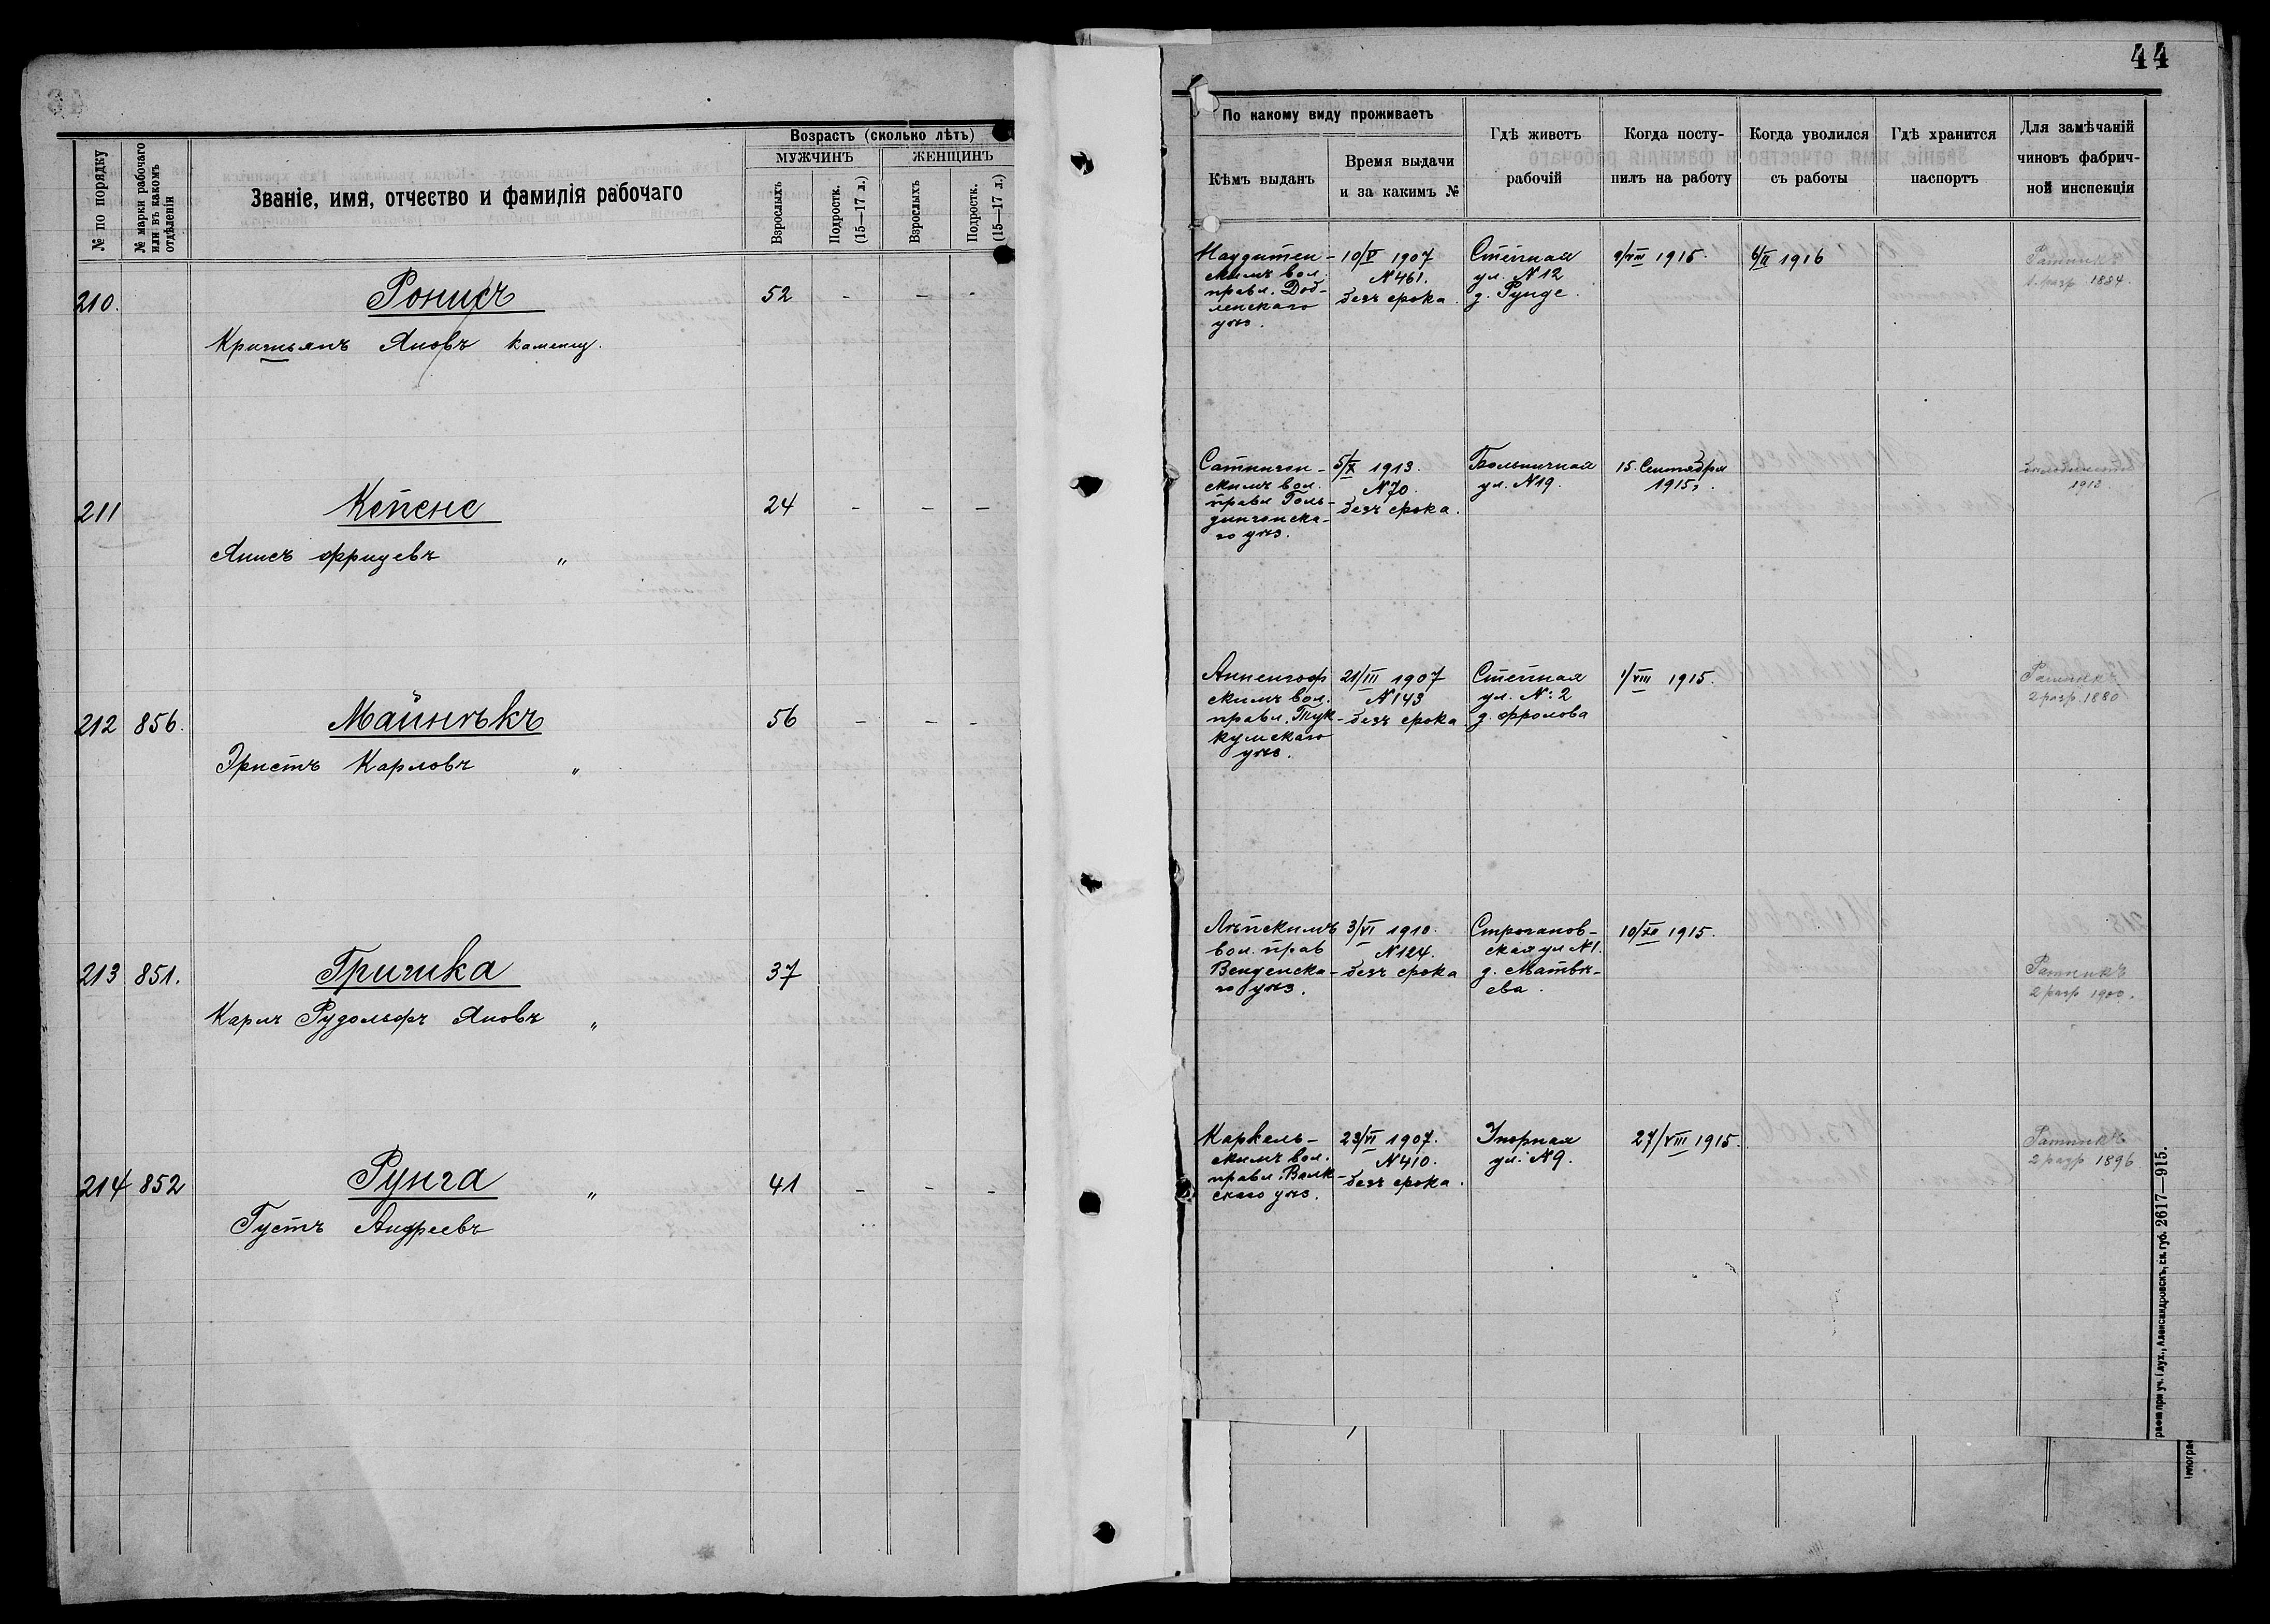 44
№ по порядку
№ марки рабочаго
или въ какомъ
отдѣленіи
Званіе, имя, отчество и фамилія рабочаго
Возрастъ (сколько лѣтъ)
МУЖЧИНЪ
ЖЕНЩИНЪ
Взрослыхъ
Подростк.
(15—17 л.)
Взрослыхъ
Подростк.
(15—17 л.)
По какому виду проживаетъ
Кѣмъ выданъ
Время выдачи
и за какимъ №
Гдѣ живетъ
рабочій
Когда посту-
пилъ на работу
Когда уволился
съ работы
Гдѣ хранится
паспортъ
Для замѣчаній
чиновъ фабрич-
ной инспекціи
210.
Ронисъ
Кришьянъ Яновъ каменщ.
52 - - -
Наудитен-
скимъ вол.
правл. Доб-
ленскаго
уѣз.
10/V 1907
№461.
безъ срока
Степная
ул. №12
д. Рунде.
9/VIII 1915.
6/II 1916
Ратникъ
1. разр. 1884.
211
Кепене
Янисъ Фрицевъ "
24 - - -
Сатинген-
скимъ вол.
правл Голь-
дингенска-
го уѣз.
5/X 1913.
№70.
безъ срока.
Больничная
ул. №19.
15. Сентября
1915г.
1913
212 856.
Майнѣкъ
Эрнстъ Карловъ "
56 - - -
Анненгоф
скимъ вол.
правл. Тук-
кумскаго
уѣз.
21/III 1907
№143
безъ срока
Степная
ул. №: 2
д. Фролова
1/VIII 1915.
Ратникъ
2 разр. 1880
213 851.
Гришка
Карлъ Рудольфъ Яновъ "
37
Лѣпскимъ
вол. прав
Венденска-
го уѣз.
3/VI 1910.
№124.
безъ срока
Строганов-
ская ул №1.
д. Матвѣ-
ева.
10/XI 1915.
Ратникъ
2 разр 1900.
214 852
Рунга "
Густъ Андреевъ
41 - - -
Каркель-
скимъ вол.
правл. Валк-
скаго уѣз.
23/VI 1907.
№410.
безъ срока.
Узорная
ул. №9.
27/VIII 1915.
Ратникъ
2 разр 1896
Александровскъ, Ек. губ. 2617—915.